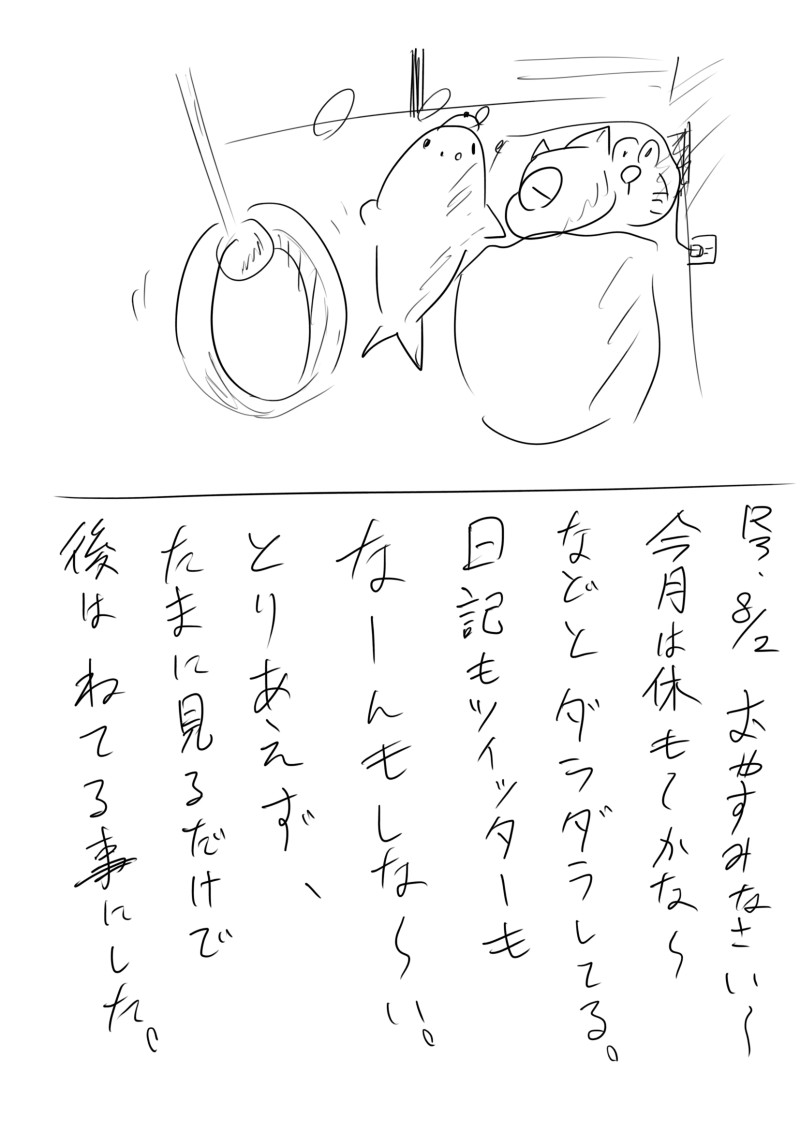 R3.8/2 おやすみなさい〜
今月は休も〜かな〜
などとダラダラしてる。
日記もツイッターも
なーんもしな〜い。
とりあえず、
たまに見るだけで
後はねてる事にした。